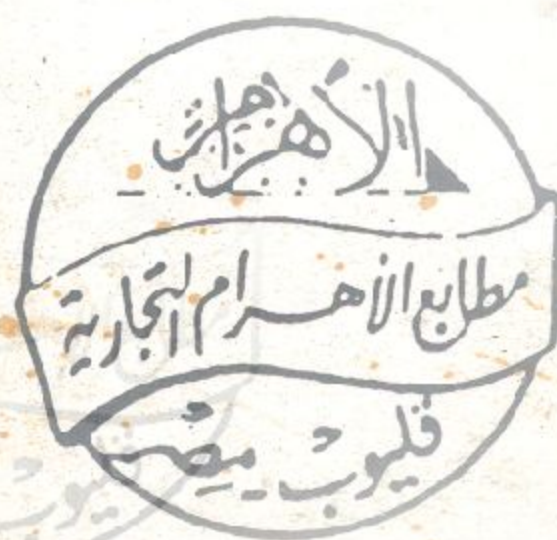 الأهرام
مطابع الأهرام التجارية
قليوب - مصر